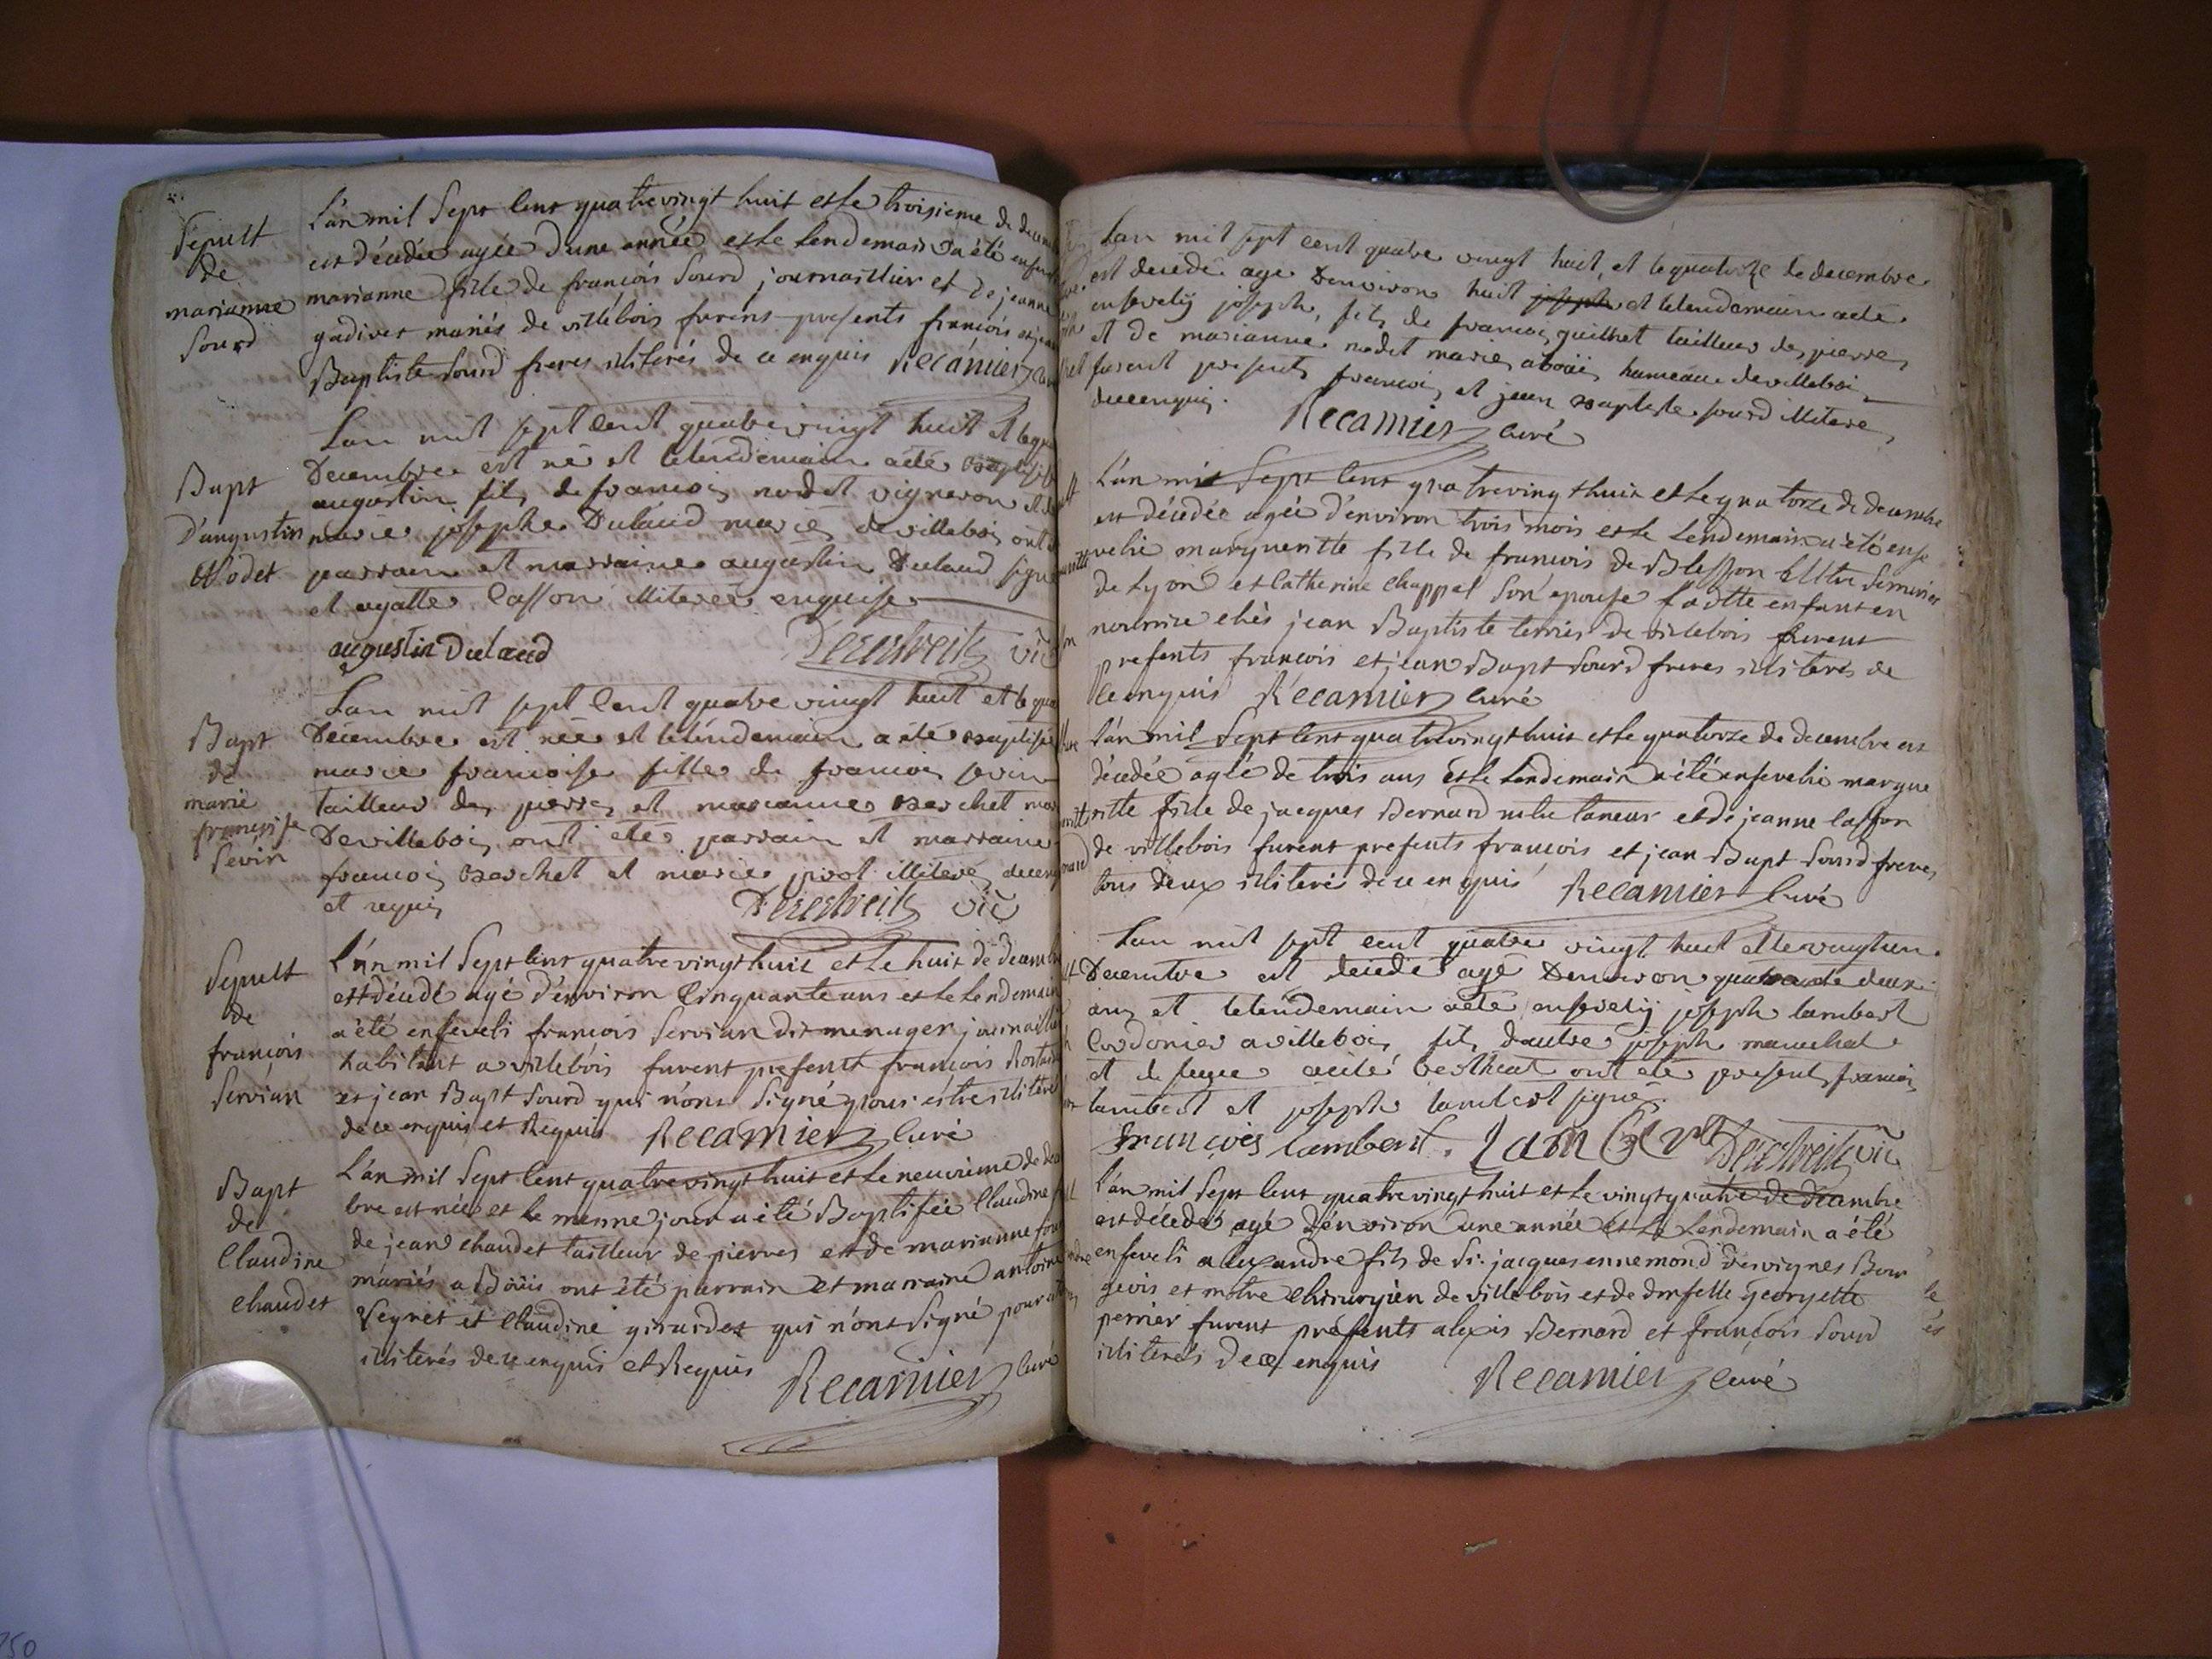 Sepult
de
marianne
Sourd
L'an mil Sept Cent quatrevingt huit et le troisieme de decem
est décédée agée d'une année et le Lendemain a été ensev
marianne fille de françois Sourd journaillier et de jeanne
gadivet mariés de villebois furent presents françois et jean
Baptiste Sourd freres illiterés de ce enquis Recamier cu
Bapt
D'augustin
Nodet
Lan mil sept cent quatrevingt huit et le qua
Decembre est né et le lendemain a été baptisé
augustin fils de francois nodet vigneron et de
marie josephe Dulaud mariés de villebois ont
parrain et marraine augustin Dulaud signé
et agatte Casson illiterée enquise
augustin Dulaud vic
Bapt
de
marie
françoise
Sevin
Lan mil sept Cent quatre vingt huit et le qua
Décembre est née et le lendemain a été baptisée
marie francoise fille de francois sevin
tailleur de pierres et marianne berchet mar
De villebois ont été parrain et marraine
francois berchet et marie pivot illiterés de ce enq
et requis vic
Sepult
de
françois
Servian
L'an mil Sept Cent quatrevingt huit et le huit de decemb
est décédé agé d'environ Cinquante ans et le lendemain
a été enseveli françois Servian dit menager journaillier
habitant a villebois furent present françois Rostain
et jean Bapt Sourd qui n'ont Signé pour être illiteré
de ce enquis et Requis Recamier Curé
Bapt
de
Claudine
Chaudet
L'an mil Sept Cent quatrevingt huit et le neuvieme de de
bre est née et le meme jour a été Baptisée Claudine
de jean chaudet tailleur de pierres et de marianne
mariés a Boüis ont été parrain et marraine antoine
Veyret et Claudine girardet qui n'ont Signé pour
illiterés de ce enquis et Requis
Recamier Curé
Lan mil sept cent quatre vingt huit, et le quatorze de decembre
est decedé agé Denviron huit joseph et le lendemain a été
ensevelÿ joseph, fils de francois guilhet tailleur de pierre
et de marianne nodet mariés a boüis hameau de villebois
furent presents francois et jean baptiste sourd illiteré
de ce enquis. Recamier Curé
L'an mil Sept Cent quatrevingt huit et le quatorze de decembre
est décédée agée d'environ trois mois et le Lendemain a été ense
velie marguerite fille de francois de
de Lyon et Catherine Chappel Son epouse ladtte enfant en
nourrice chés jean Baptiste de villebois furent
presents françois et jean Bapt Sourd freres illiterés de
ce enquis Recamier Curé
L'an mil Sept Cent quatrevingt huit et le quatorze de decembre est
décédée agée de trois ans et le Lendemain a été ensevelie margue
ritte fille de jacques Bernard mtre taneur et de jeanne Casson
de villebois furent presents françois et jean Bapt Sourd freres
tous deux illiteré de ce enquis Recamier Curé
Lan mil sept cent quatre vingt huit et le vingt un
Decembre est decedé agé Denviron quarante deux
ans et le lendemain a été ensevelÿ joseph lambert
Cordonier a villebois fils d'autre joseph marechal
et de ont été presents francois
lambert et joseph lambert signé.
francois lambert. Lambert vic
L'an mil Sept Cent quatrevingt huit et le vingt quatre de decembre
est décédé agé d'environ une année et le Lendemain a été
enseveli alexandre fils de Sr. jacques ennemond Desvignes Bour
geois et mtre Chirurgien de villebois et de dmselle Georgette
perrier furent presents alexis Bernard et françois Sourd
illiterés de ce enquis Recamier Curé